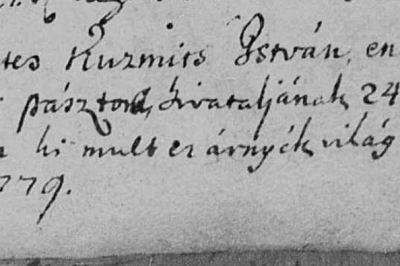 tes Kuzmits István, en
pásztor, hivataljának 24
ki mult ez árnyék világ
779.